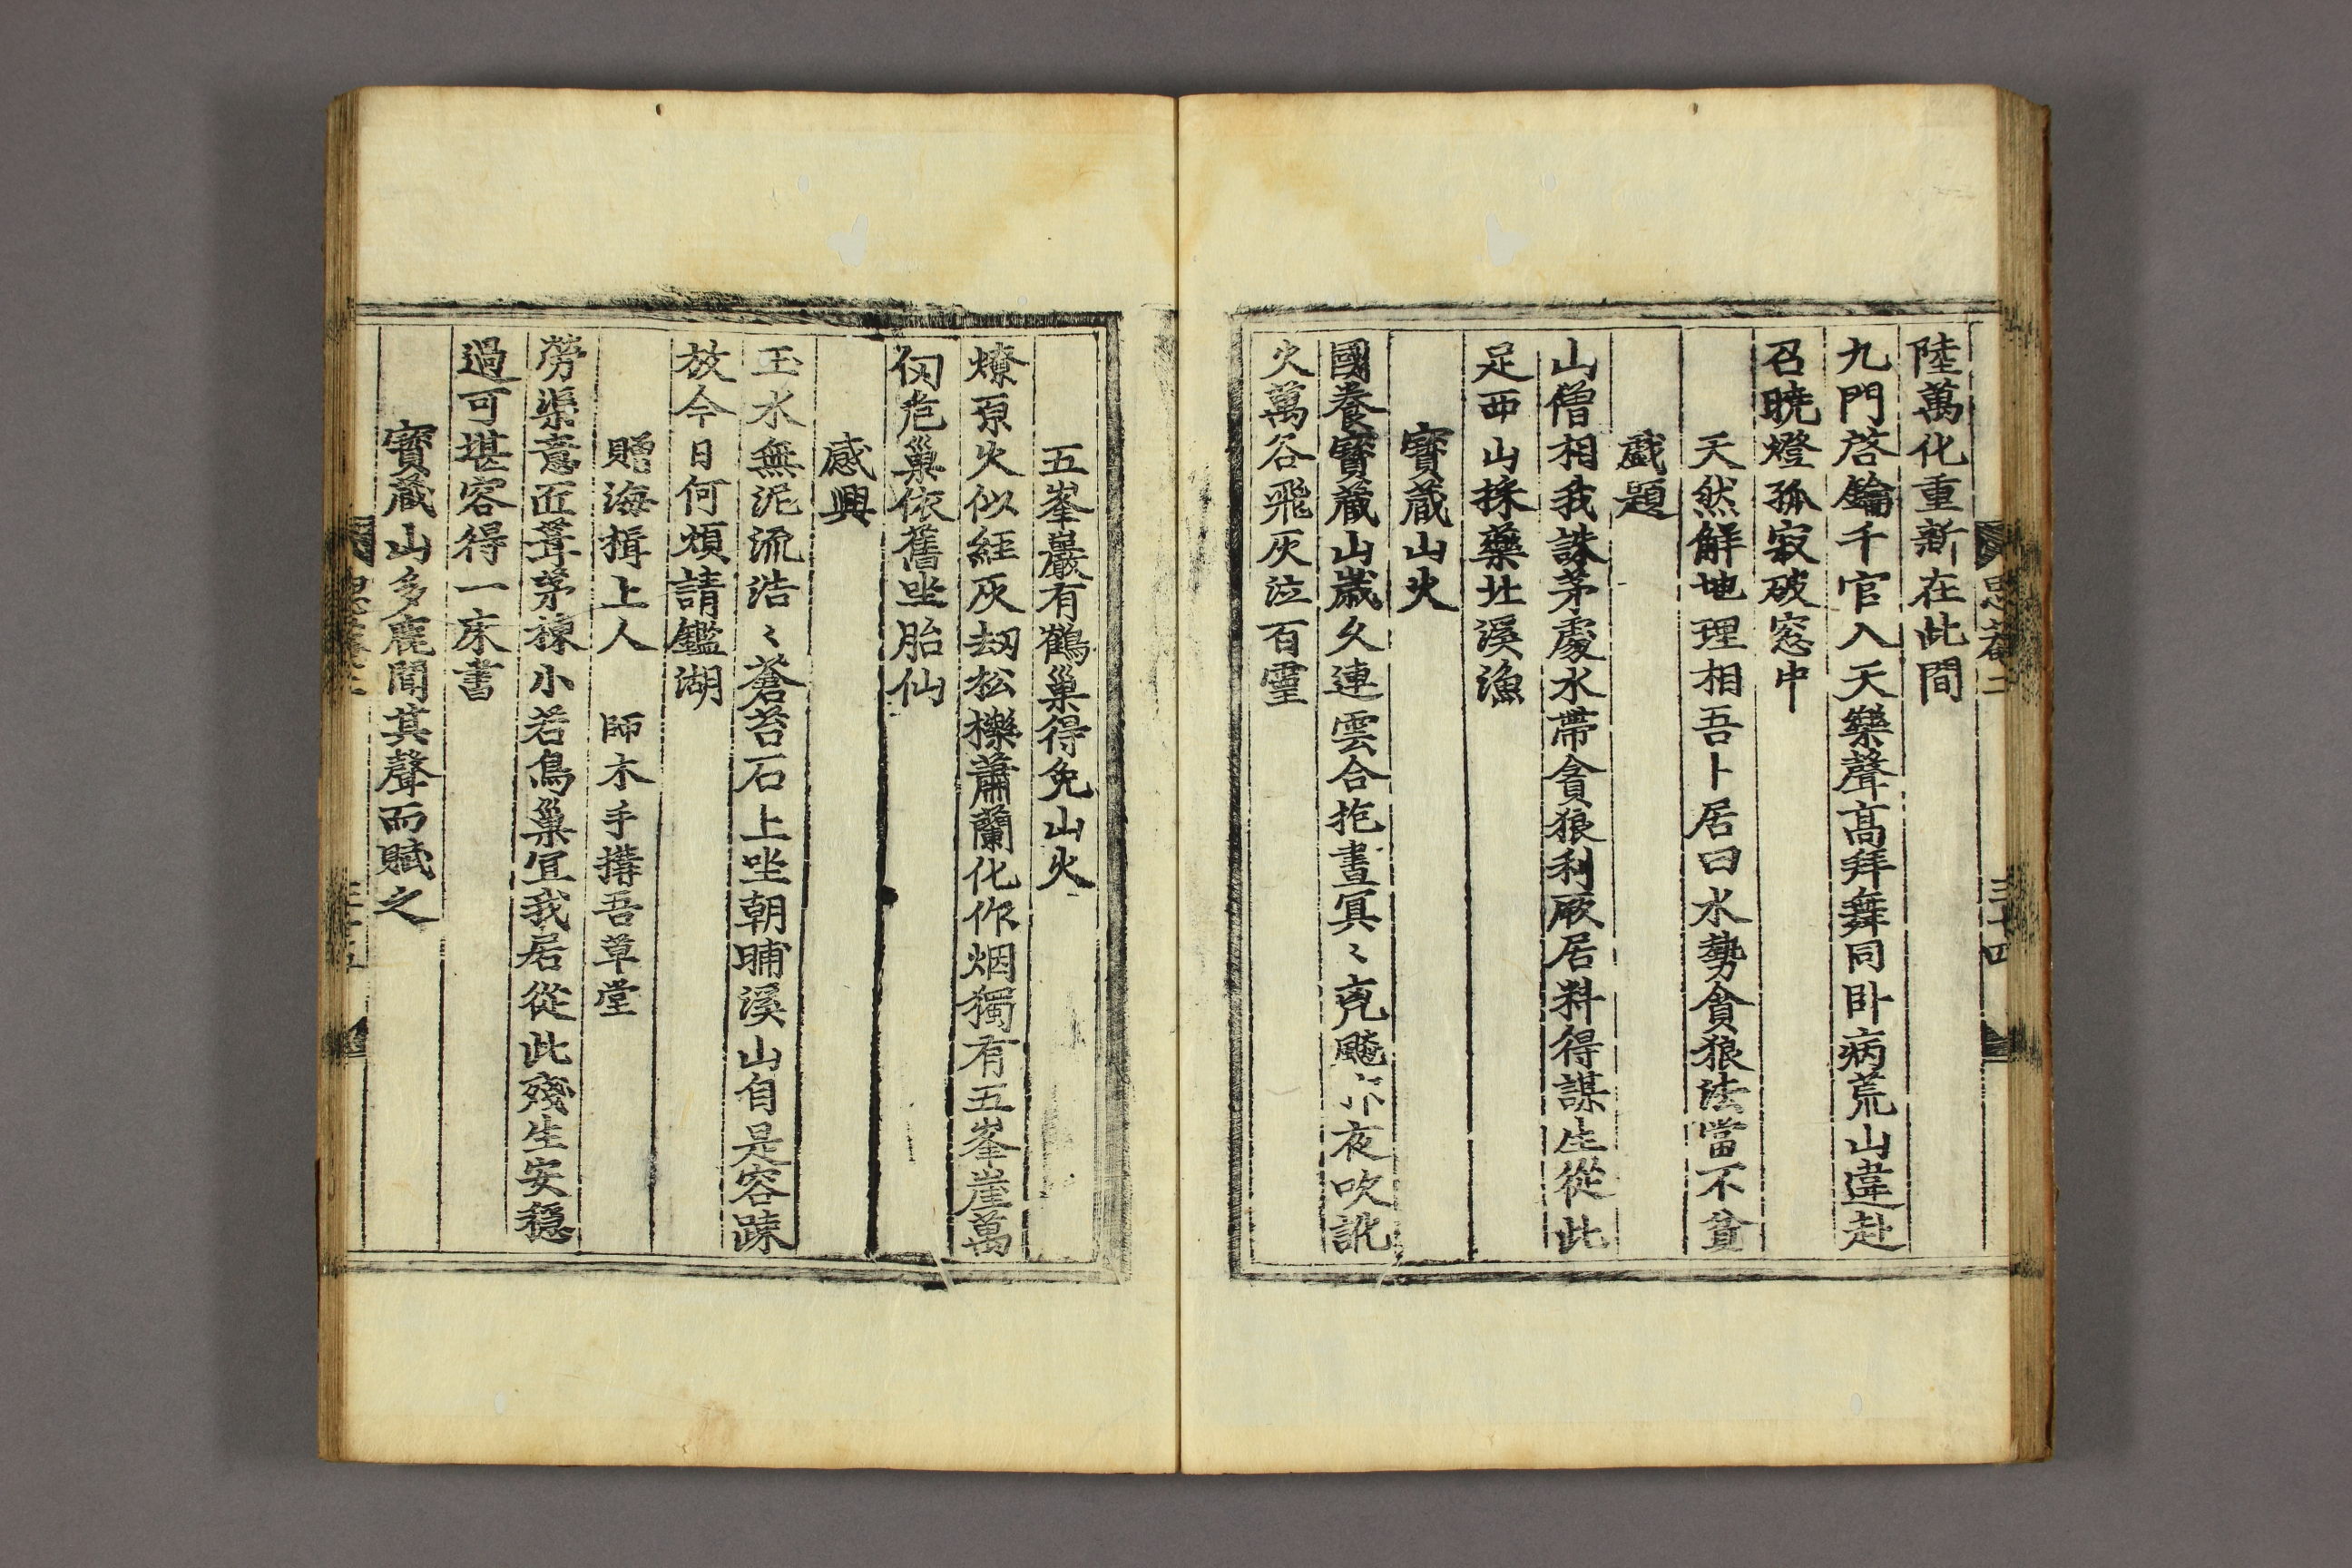 陸萬化重新在此間
九門啓鑰千官入天樂聲高拜舞同卧病荒山違赴
召曉燈孤寂破窓中
天然解地理相吾卜居曰水勢貪狼法當不貧
戱題
山僧相我誅茅處水帶貪狼利厥居料得謀生從此
足西山採藥北溪漁
寶藏山火
國養寶藏山歲久連雲合抱晝冥〻夜吹訛
火萬谷飛灰泣百靈
五峯巖有鶴巢得免山火
燎原火似經灰刼松櫟蕭蘭化作烟獨有五峯崖萬
仞危巢依舊坐胎仙
感興
玉水無泥流浩〻蒼苔石上坐朝晡溪山自是容踈
放今日何煩請鑑湖
贈海揖上人 師木手搆吾草堂
勞渠意匠葺茅棟小若鳥巢宜我居從此殘生安穩
過可堪容得一床書
寶藏山多鹿聞其聲而賦之
三十四